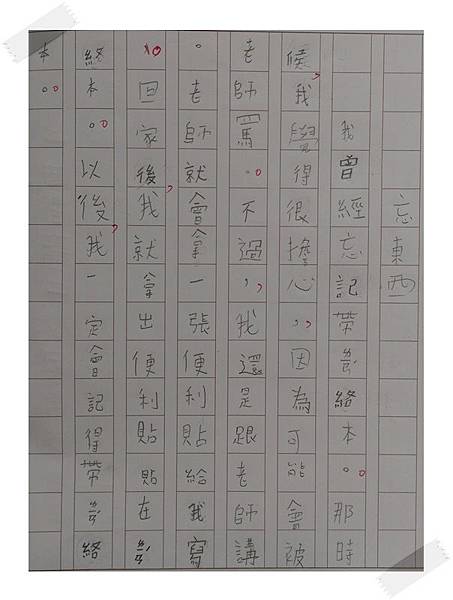 忘東西
我曾經忘記帶聯絡本。那時
候，我覺得很擔心，因為可能會被
老師罵。不過，我還是跟老師講
。老師就會拿一張便利貼給我寫
。回家後，我就拿出便利貼貼在聯
絡本。以後，我一定會記得帶聯絡
本。